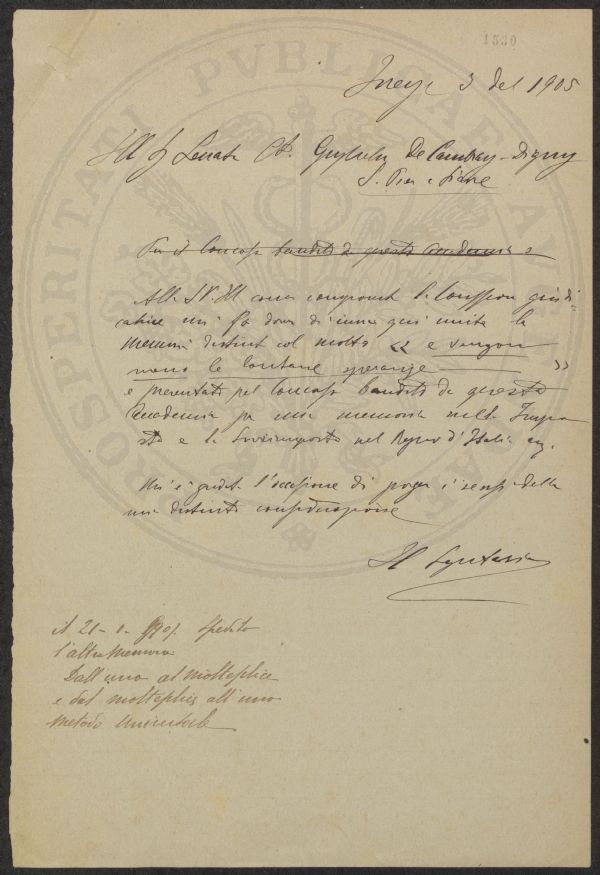 1530
Firenze 3 del 1905
Ill Senatore Guglielmo De Cambray-Digny
S. Piero a Sieve
Per il Concorso bandito da questa Accademia
Alla S.V. Ill come componente la Commissione giudi-
catrice mi fo dovere di inviare qui unita la
memoria distinta col motto « e vengon
meno le lontane speranze »
e presentata pel Concorso bandito da questa
Accademia per una memoria sulla Impo
sta e la Sovrimposta nel Regno d'Italia
Mi è grata l'occasione di porger i sensi della
mia distinta considerazione
Il Segretario
il 21-1- spedito
l'altra Memoria
Dall'uno al molteplice
e dal molteplice all'uno
metodo universale
PROSPERITATI PVBLICAE AVGENDAE